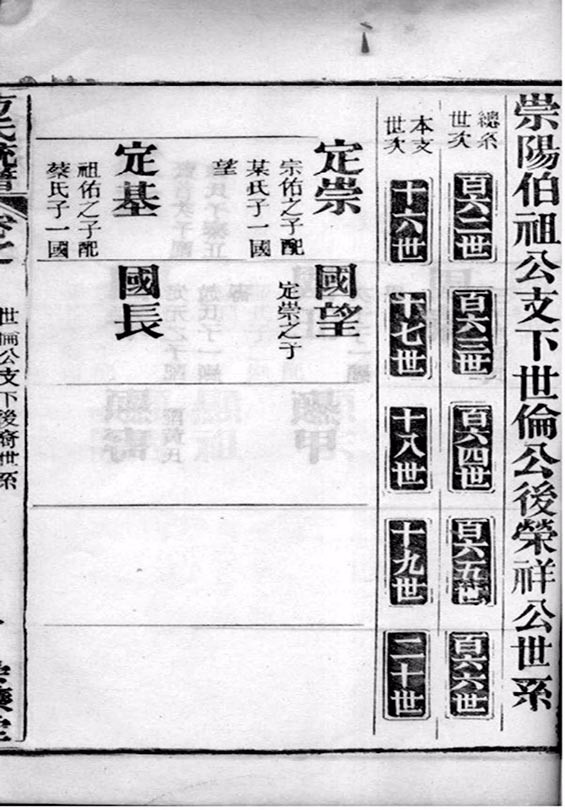 崇陽伯祖公支下世倫公後榮祥公世系
總系世次
百六二世
百六三世
百六四世
百六五世
百六六世
本支世次
十六世
十七世
十八世
十九世
二十世
定崇
宗佑之子配
某氏子一國
望
國望
定崇之子
定基
祖佑之子配
蔡氏子一國
國長
方氏統譜
世倫公支下後裔世系